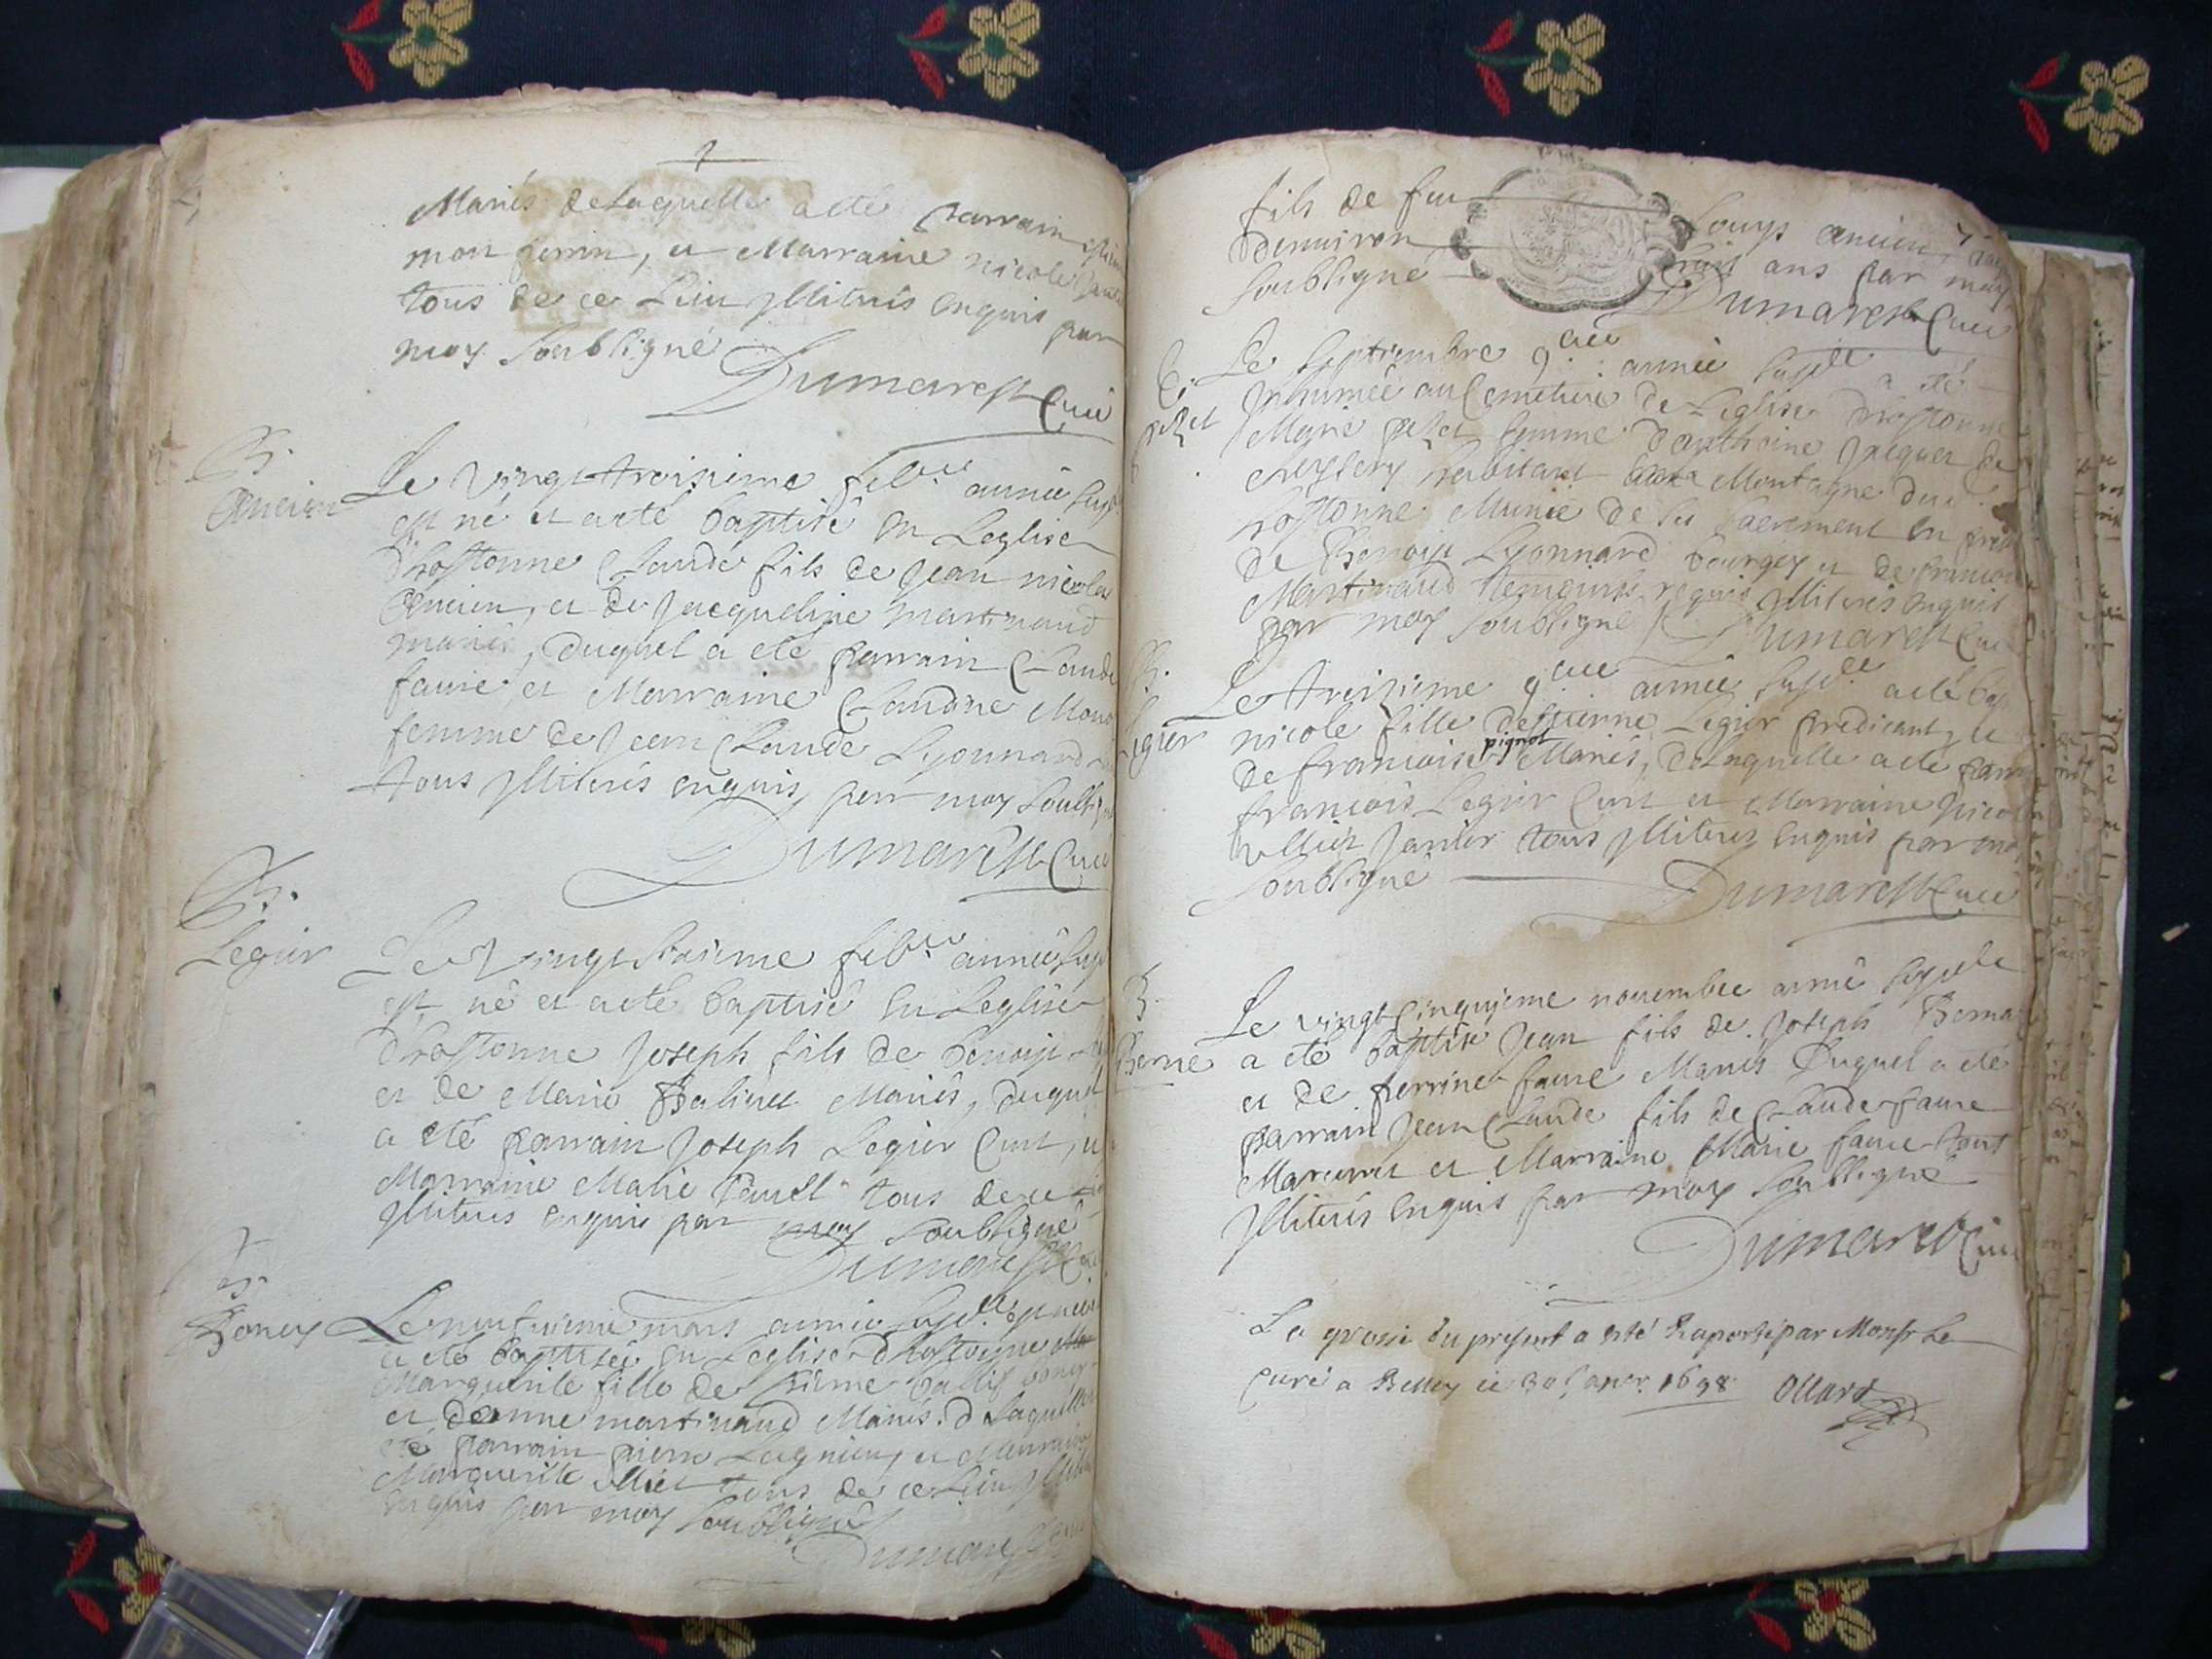 Mariés de laquelle a eté parrain
mon perrin, et Marraine nicole
tous de ce Lieu Illiterés enquis par
moy soubsigné
Dumarest Curé
B.
Ancien
Le vingt troisieme feb.re année susd
est né et a eté baptisé en Leglise
dhostonne Claude fils de Jean nicolas
Ancien, et de Jacqueline martinaud
mariés, duquel a eté parrain Claude
faure, et Marraine Claudine
femme de Jean Claude Lyonnard
tous Illiterés enquis par moy soubsigné
Dumarest Curé
B.
Legier
Le vingt sixieme feb.re année susd
est né et a eté baptisé en Leglise
dhostonne Joseph fils de benoist
et de Marie Baliuet Mariés, duquel
a eté parrain Joseph Legier Curt, et
Marraine Marie tous de ce
Illiterés enquis par moy soubsigné
Dumarest Curé
B.
Boney
Le neufuieme mars année susd.e est née
a eté baptisée en Leglise dhostonne
Marguerite fille de pierre
et danne martinaud Mariés. de laquelle
eté parrain pierre et Marraine
Marguerite Miet tous de ce Lieu
enquis par moy soubsigné
Dumarest
fils de feu Louys ancien
denuiron trois ans par moy
soubsigné Dumarest Curé
E.
pezet
Le septiembre 9.bre année susd.e a eté
Inhumée au Cemetiere de Leglise dhostonne
Marie pezet femme danthoine Jaquet de
habitant Montagne
hostonne Munie de ses sacrement en
de Benoist Lyonnard bourgey et de francois
Martinaud temoins requis Illiterés enquis
par moy soubsigné Dumarest Curé
B.
Legier
Le treizieme 9bre année susd.e a eté bap
nicole fille destienne Legier predicant, et
de francoise pignol Mariés, de laquelle a eté parr
francois Legier Curt et Marraine Nicole
Miet Janier tous Illiterés enquis par moy
soubsigné Dumarest Curé
B.
Berne
Le vingt Cinquieme nouembre année susd.e
a eté baptisé Jean fils de Joseph Berna
et de perrine faure Mariés Duquel a eté
parrain Jean Claude fils de Claude faure
et Marraine Marie faure tous
Illiterés enquis par moy soubsigné
Dumarest Curé
La grosse du present a esté Raporté par Monsr Le
Curé a Belley ce 30e anr. 1698 Ollard